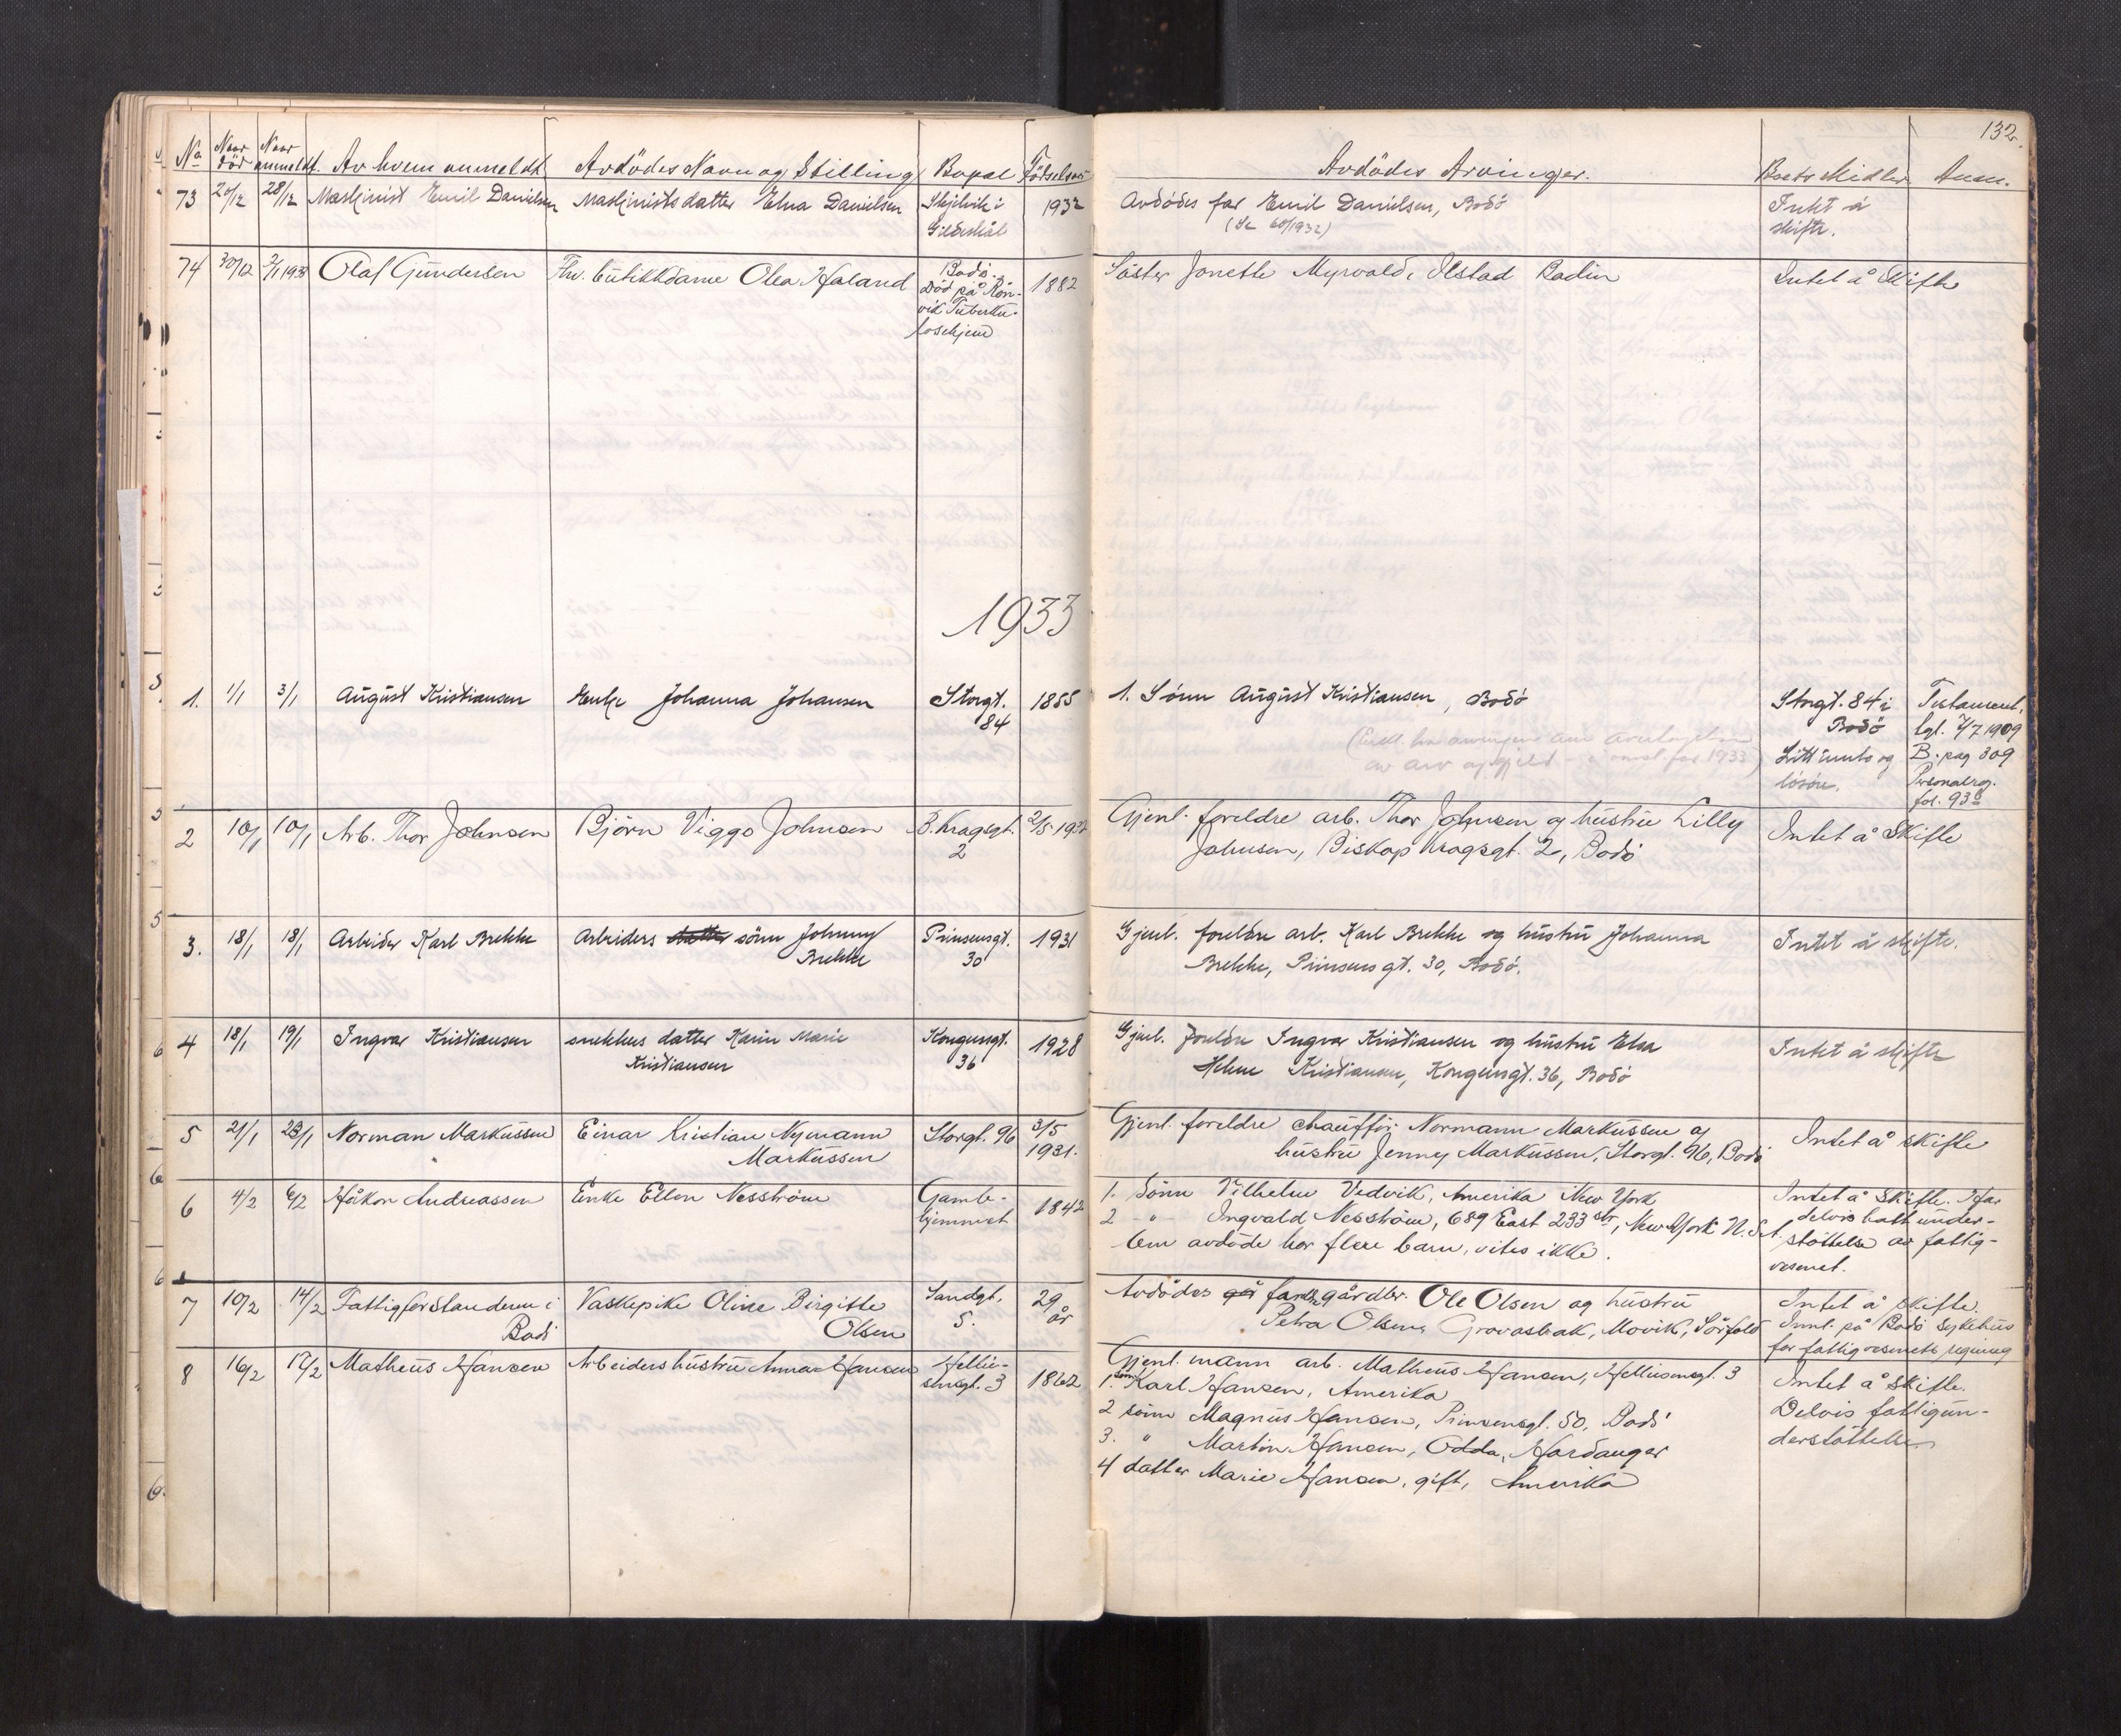 132.
No Naar död Naar anmeldt. Av hvem anmeldt Avdödes Navn og Stilling Bopæl Födselsår Avdödes Arvinger. Boets Midler Anm.
73 20/12 28/12 Maskinist Emil Danielsen Maskinistsdatter Elna Danielsen Skjelvik i 1932 Avdödes far Emil Danielsen, Bodö Intet å
Gildeskål (Se 60/1932) skifte.
74 30/12 2/1 193 Olaf Gundersen Fhv. butikkdame Olea Haland Bodö. 1882 Söster Jonette Myrvold, Ilstad Bodin Intet å Skifte
Död på Rön-
vik Tuberku-
losehjem
1933
1. 1/1 3/1 August Kristiansen Enke Johanna Johansen Storgt. 1855 1. Sönn August Kristiansen, Bodö Storgt. 84 i Testament,
84 Bodö lgl. 4/7 1909
av arv for 1933) Litt innbo og B. pag 309
lösöre. Personalreg.
fol. 93
2 10/1 10/1 Arb. Thor Johnsen Björn Viggo Johnsen B. Kragsgt. 2/5 1932 Gjenl. foreldre arb. Thor Johnsen og hustru Lilly Intet å Skifte
2 Johnsen, Biskop Kragsgt. 2, Bodö
3. 18/1 18/1 Arbeider Karl Brekke Arbeiders datter sönn Johnny Prinsensgt. 1931 Gjenl. foreldre arb. Karl Brekke og hustru Johanna Intet å skifte.
Brekke 30 Brekke, Prinsensgt. 30, Bodö.
4 18/1 19/1 Ingvar Kristiansen snekkers datter Karin Marie Kongensgt. 1928 Gjenl. foreldre Ingvar Kristiansen og hustru Elsa Intet å skifte
Kristiansen 36 Helene Kristiansen, Kongensgt. 36, Bodö
5 21/1 23/1 Norman Markussen Einar Kristian Nymann Storgt. 96 3/5 Gjenl. foreldre chauffør Normann Markussen og Intet å skifte
Markussen 1931. hustru Jenny Markussen, Storgt. 96, Bodö
6 4/2 6/2 Håkon Andreassen Enke Ellen Nesström Gamle- 1842 1. Sönn Vilhelm Vedvik, Amerika New York Intet å skifte. Har
hjemmet 2 - " - Ingvald Nesström, 689 East 233 str, New York N. S. A. delvis hatt under-
Om avdöde har flere barn, vites ikke. stöttelse av fattig-
vesenet.
7 10/2 14/2 Fattigforstanderen i Vaskepike Oline Birgitte Sandgt. 29 Avdödes går foreldre gårdbr. Ole Olsen og hustru Intet å skifte.
Bodö Olsen 5. år Petra Olsen, Grovasbak, Movik, Sörfold Innl. på Bodö sykehus
for fattigvesenets regning
8 16/2 17/2 Matheus Hansen Arbeiders hustru Anna Hansen Hellie- 1862 Gjenl. mann arb. Matheus Hansen, Helliesensgt. 3
sensgt. 3 1. sönn Karl Hansen, Amerika Intet å skifte.
2 sönn Magnus Hansen, Prinsensgt. 50, Bodö Delvis fattigun-
3. " Martin Hansen, Odda, Hardanger derstöttelse
4 datter Marie Hansen, gift, Amerika